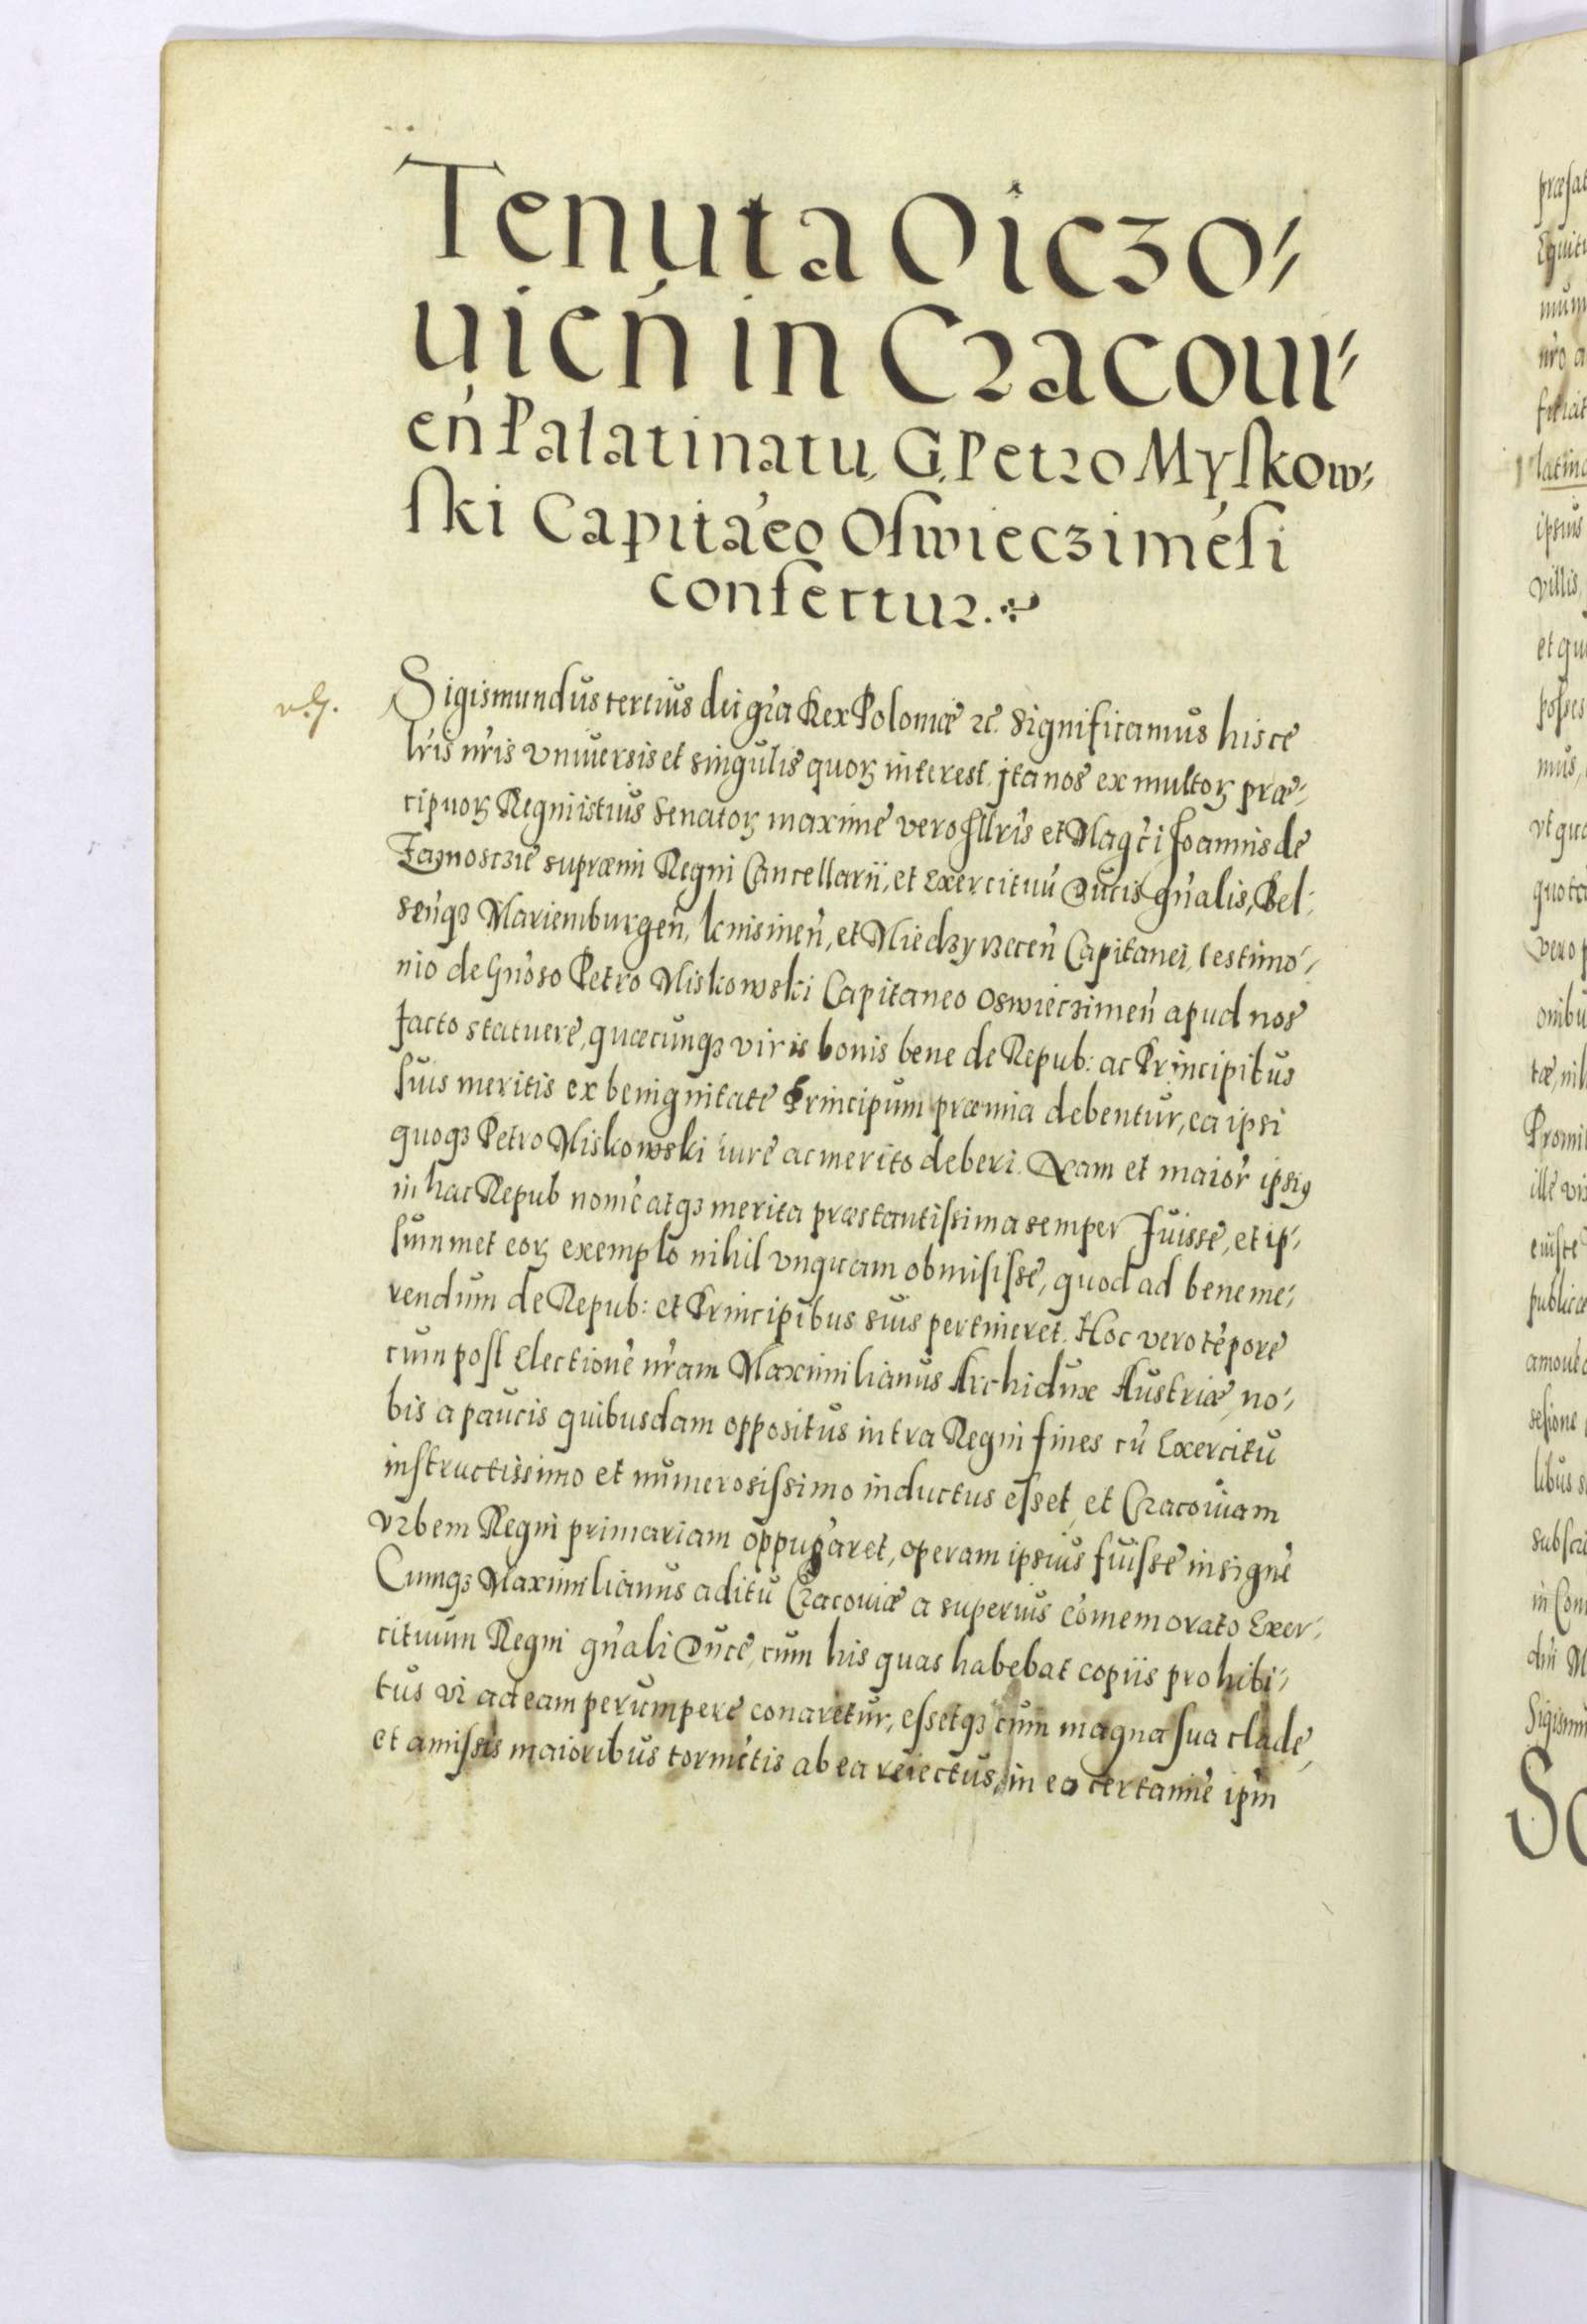 Tenuta Oiczo-
uien̄ in Cracoui-
en̄ Palatinatu, G, Petro Myſkow-
ſki Capitāeo Oſwieczimēſi
confertur.
Sigismundus tertius dei gr̄a Rex Poloniæ ⁊c̄. Significamus hisce
lr̄is nr̄is vniuersis et singulis quoꝝ interest. Ita nos ex multoꝝ præ-
cipuoꝝ Regni istius Senatoꝝ maxime vero Illr̄is et Magc̄i Joannis de
Zamosczie supræmi Regni Cancellarii, et Exercituū Ducis gn̄alis, Bel-
sen̄qꝫ Mariemburgen̄, Knisinen̄, et Miedzyrzecen̄ Capitanei, testimo-
nio de Gn̄oso Petro Miskowski Capitaneo Oswieczimen̄ apud nos
facto statuere, quæcunqꝫ viris bonis bene de Repub: ac Principibus
suis meritis ex benignitate Principum præmia debentur, ea ipsi
quoqꝫ Petro Miskowski iure ac merito deberi. Nam et maior̄ ipsiꝰ
in hac Repub nomē atqꝫ merita præstantiſsima semper fuisse, et ip-
summet eoꝝ exemplo nihil vnquam obmisiſse, quod ad bene me-
rendum de Repub: et Principibus suis pertineret. Hoc vero tēpore
cum post Electionē nr̄am Maximilianus Archidux Austriæ, no-
bis a paucis quibusdam oppositus intra Regni fines cū Exercitu
instructissimo et numerosiſsimo inductus eſset, et Cracouiam
vrbem Regni primariam oppugāret, operam ipsius fuiſse insignē
Cumqꝫ Maximilianus aditu Cracouiæ a superius cōmemorato Exer-
cituum Regni gn̄ali Duce, cum his quas habebat copiis prohibi-
tus vi ad eam perumpere conaretur, eſsetqꝫ cum magna sua clade,
et amiſsis maioribus tormētis ab ea reiectus, in eo certamīe ip̄m